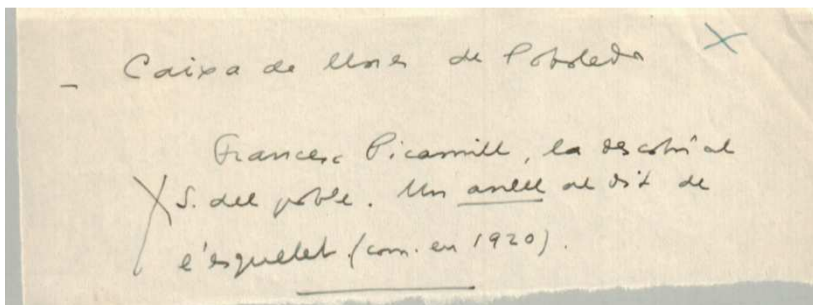 - Caixa de lloses de Poboleda
Francesc Picamill, la descobrí al
S. del poble. Un anell al dit de
l'esquelet. (com. en 1920).